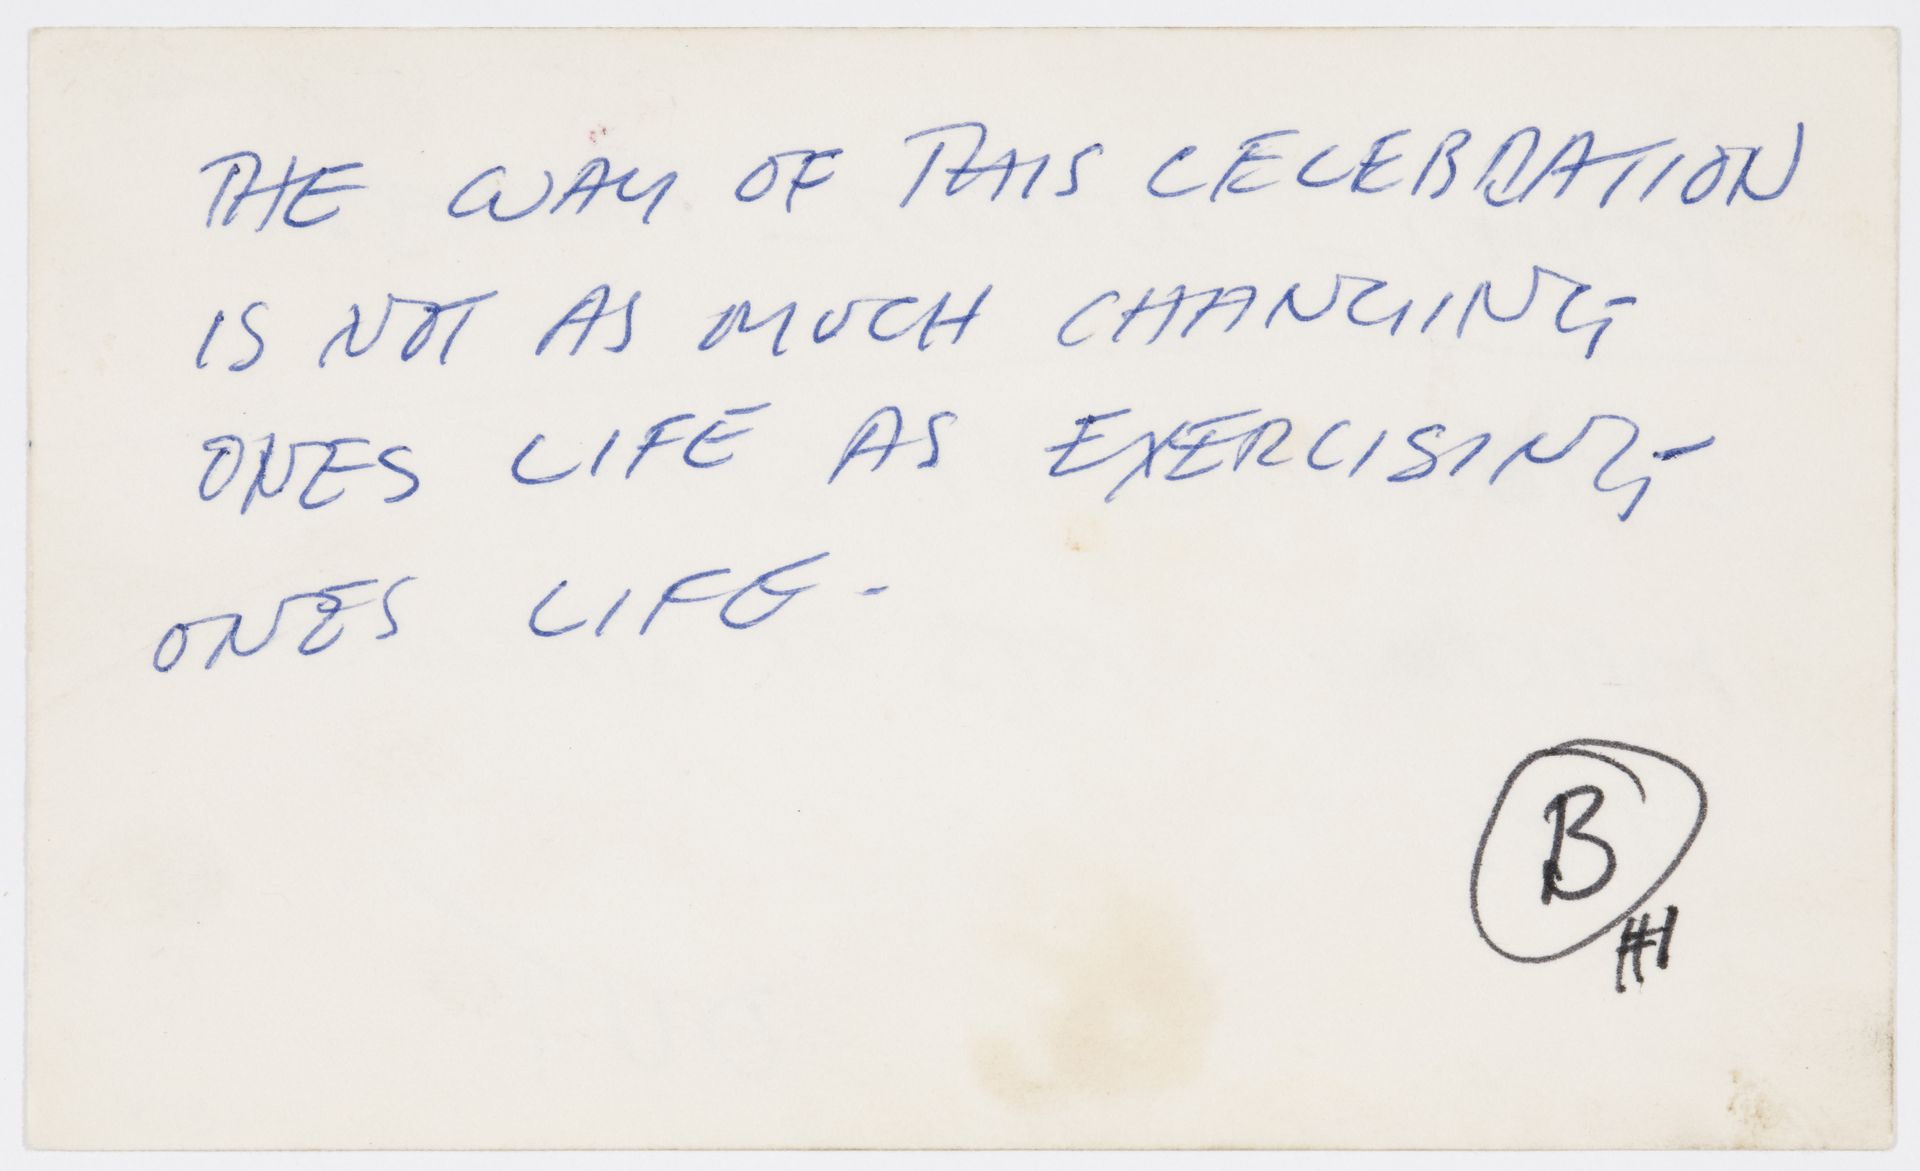 THE WAY OF THIS CELEBRATION
IS NOT AS MUCH CHANGING
ONES LIFE AS EXERCISING
ONES LIFE -
B
#1